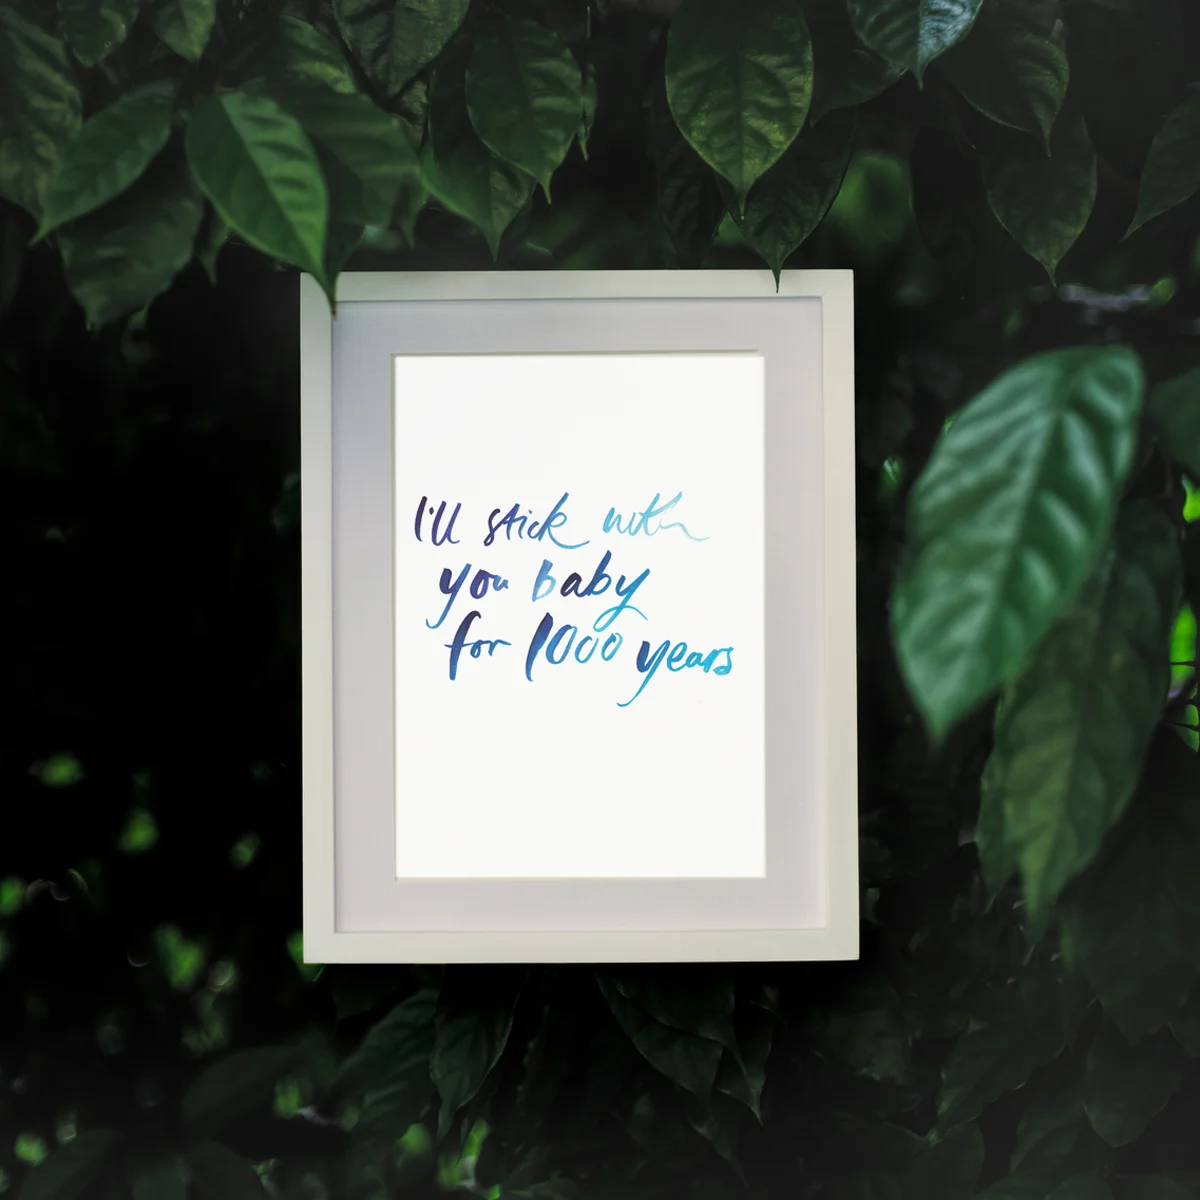 I'll stick with
you baby
for 1000 years